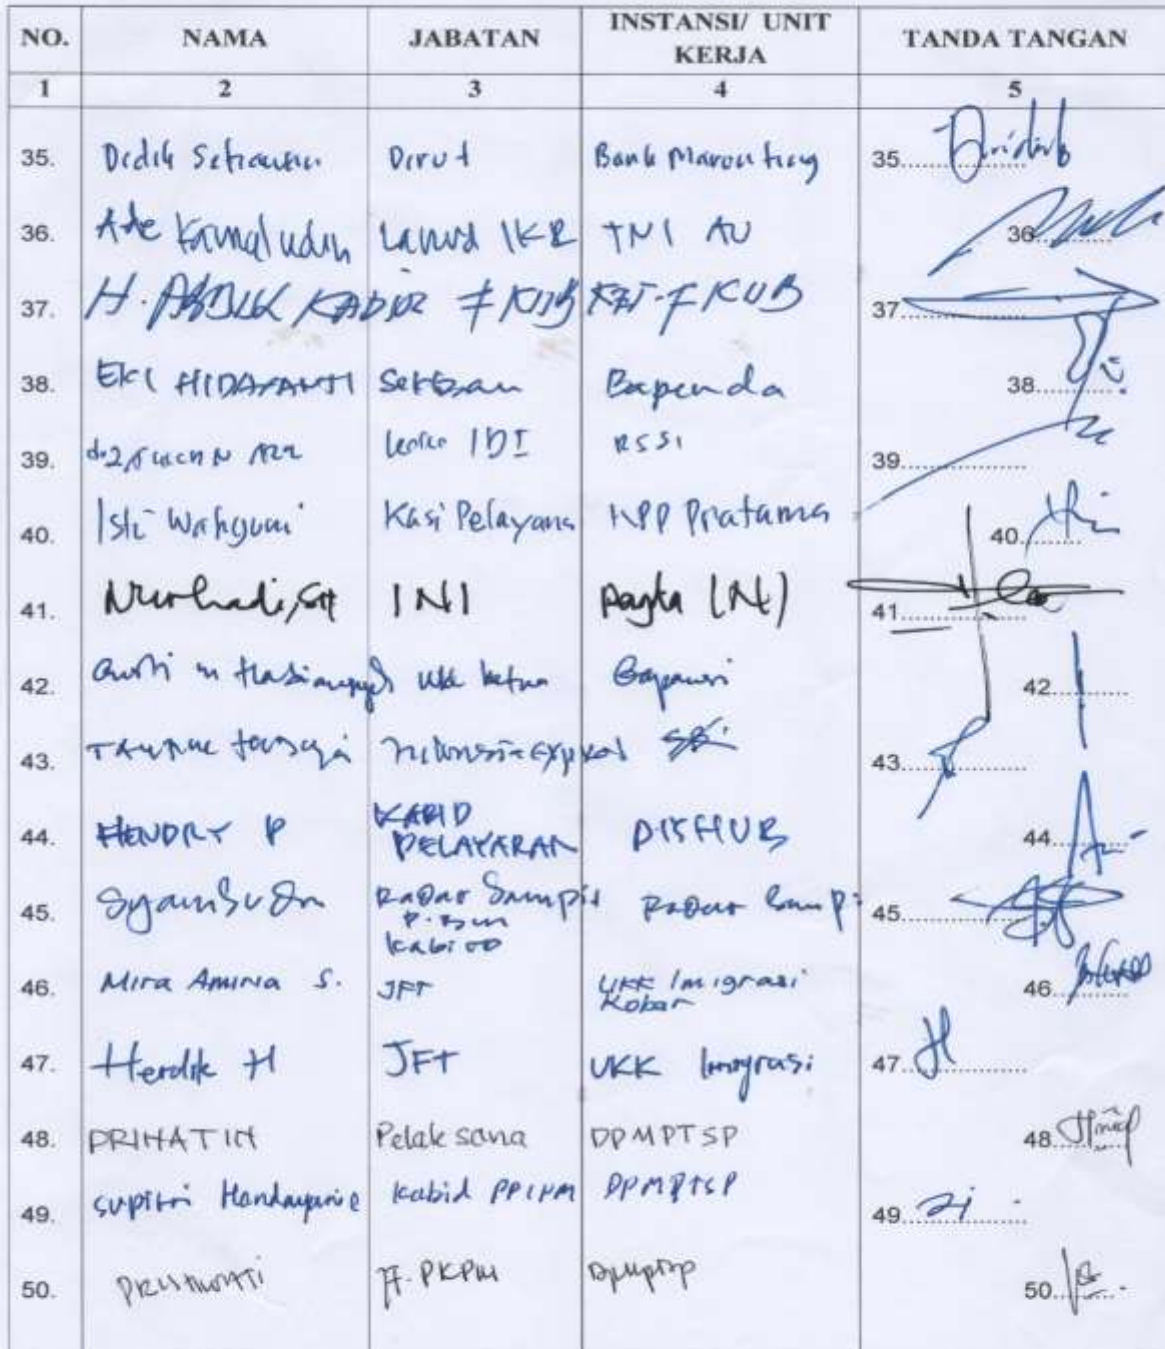 NO. NAMA JABATAN INSTANSI/ UNIT KERJA TANDA TANGAN
1 2 3 4 5
35. Didik Setiawan Dirut Bank Marunting 35
36. Ade Kamaludin Lanud IKR TNI AU 36
37. H. ABDUL KADIR FKUB FKUB 37
38. EKI HIDAYANTI Sekban Bapenda 38
39. IDI RSSI 39
40. Isti Wahyuni Kasi Pelayana KPP Pratama 40
41. Nurhadi, SH INI INI 41
42. Gusti M 42
43. 43
44. HENDRY P KABID PELAYARAN DISHUB 44
45. Syamsudin Radar Sampit Radar Sampi 45
46. Mira Amina S. JFT UKK Imigrasi Kobar 46
47. Herdik H JFT UKK Imigrasi 47
48. PRIHATIN Pelaksana DPMPTSP 48
49. Supitri Handayani Kabid DPMPTSP 49
50. PKPM Dpmptsp 50